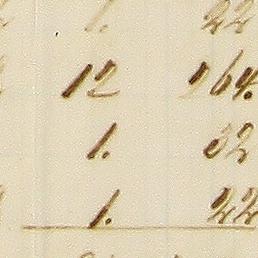 1. 22
12 764.
1. 32
1. 22